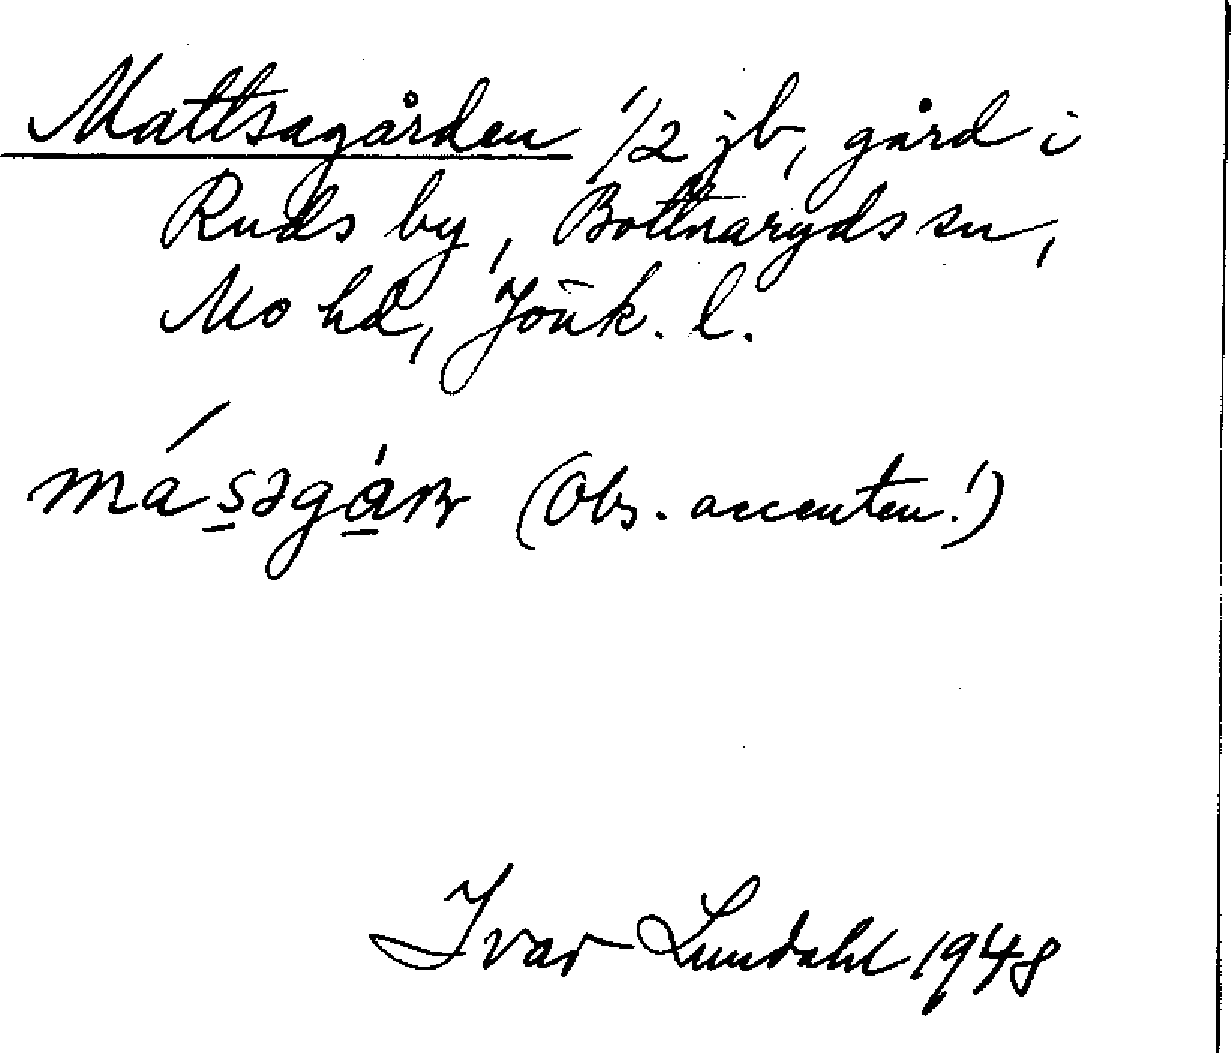 Mattsagården 1/2 jb, gård i
Ruds by, Bottnaryds sn,
Mo hd, Jönk. l.
(Obs. accenten!)
Ivar Lundahl 1948